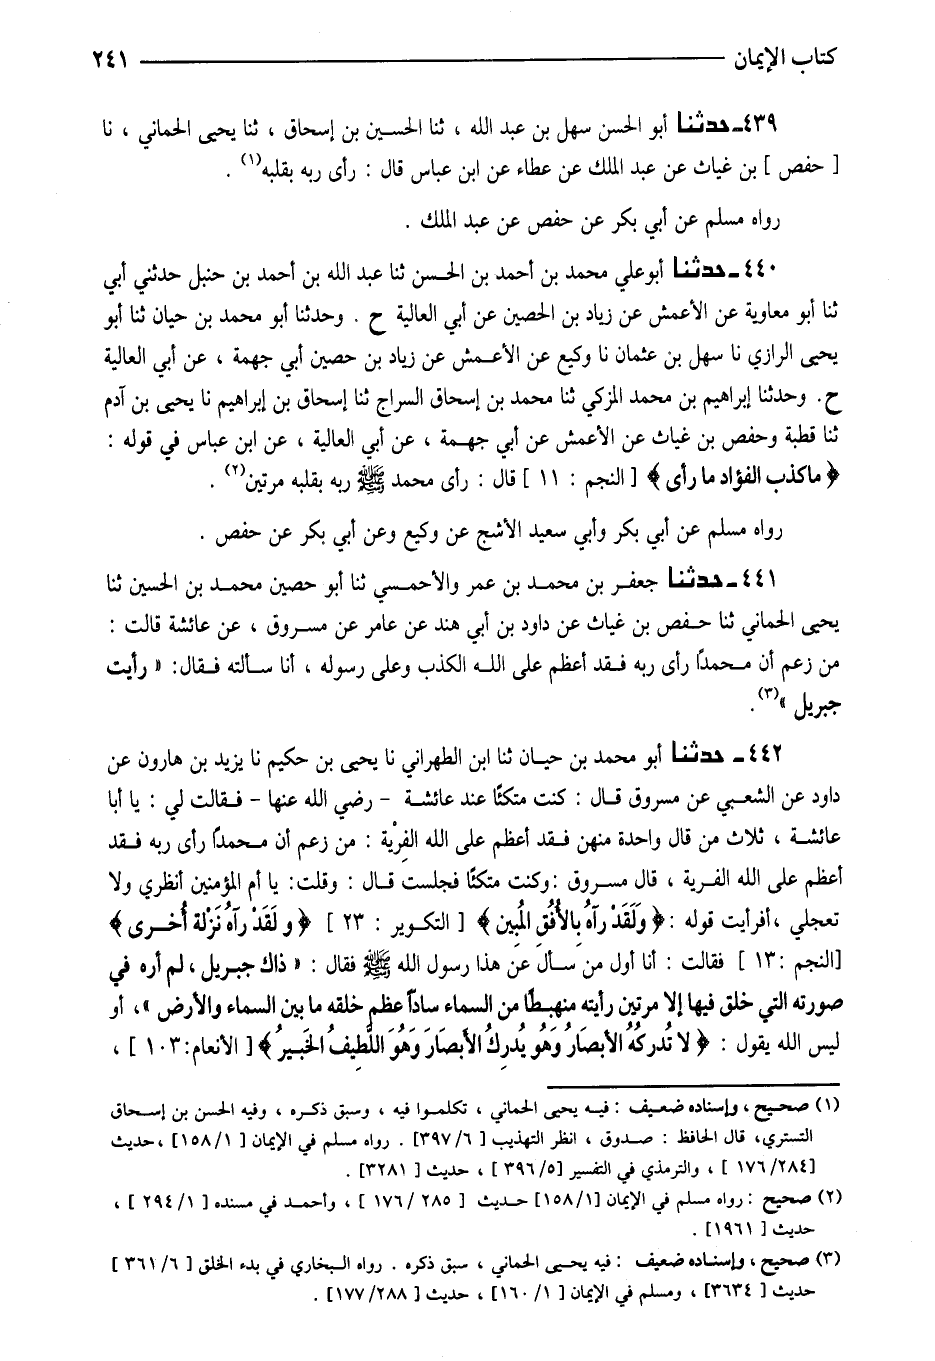 كتاب الإيمان ٢٤١
٤٣٩ـ حدثنا أبو الحسن سهل بن عبد الله ، ثنا الحسين بن إسحاق ، ثنا يحيى الحماني ، نا
[ حفص ] بن غياث عن عبد الملك عن عطاء عن ابن عباس قال : رأى ربه بقلبه(١) .
رواه مسلم عن أبي بكر عن حفص عن عبد الملك .
٤٤٠ـ حدثنا أبوعلي محمد بن أحمد بن الحسن ثنا عبد الله بن أحمد بن حنبل حدثني أبي
ثنا أبو معاوية عن الأعمش عن زياد بن الحصين عن أبي العالية ح . وحدثنا أبو محمد بن حيان ثنا أبو
يحيى الرازي نا سهل بن عثمان نا وكيع عن الأعمش عن زياد بن حصين أبي جهمة ، عن أبي العالية
ح. وحدثنا إبراهيم بن محمد المزكي ثنا محمد بن إسحاق السراج ثنا إسحاق بن إبراهيم نا يحيى بن آدم
ثنا قطبة وحفص بن غياث عن الأعمش عن أبي جهمة ، عن أبي العالية ، عن ابن عباس في قوله :
﴿ ماكذب الفؤاد ما رأى ﴾ [ النجم : ١١ ] قال : رأى محمد ﷺ ربه بقلبه مرتين(٢) .
رواه مسلم عن أبي بكر وأبي سعيد الأشج عن وكيع وعن أبي بكر عن حفص .
٤٤١ـ حدثنا جعفر بن محمد بن عمر والأحمسي ثنا أبو حصين محمد بن الحسين ثنا
يحيى الحماني ثنا حفص بن غياث عن داود بن أبي هند عن عامر عن مسروق ، عن عائشة قالت :
من زعم أن محمدًا رأى ربه فقد أعظم على الله الكذب وعلى رسوله ، أنا سألته فقال: « رأيت
جبريل »(٣).
٤٤٢ـ حدثنا أبو محمد بن حيان ثنا ابن الطهراني نا يحيى بن حكيم نا يزيد بن هارون عن
داود عن الشعبي عن مسروق قال : كنت متكئًا عند عائشة – رضي الله عنها – فقالت لي : يا أبا
عائشة ، ثلاث من قال واحدة منهن فقد أعظم على الله الفِرْية : من زعم أن محمدًا رأى ربه فقد
أعظم على الله الفرية ، قال مسروق :وكنت متكئًا فجلست قال : وقلت: يا أم المؤمنين أنظري ولا
تعجلي ،أفرأيت قوله :﴿ وَلَقَدْ رَآهُ بِالأُفُقِ المُبِينِ ﴾ [ التكوير : ٢٣ ] ﴿ و لَقَدْ رَآهُ نَزْلةً أُخـرى ﴾
[النجم :١٣ ] فقالت : أنا أول من سأل عن هذا رسول الله ﷺ فقال : « ذاك جبريل ، لم أره في
صورته التي خلق فيها إلا مرتين رأيته منهبطًا من السماء سادًا عظم خلقه ما بين السماء والأرض »، أو
ليس الله يقول : ﴿ لا تُدركُهُ الأبصَارُ وَهُو يُدرِكُ الأَبصَارَ وَهُوَ اللَّطِيفُ الخَبيرُ ﴾[ الأنعام:١٠٣ ] ،
(١) صحيح ، وإسناده ضعيف : فيه يحيى الحماني ، تكلموا فيه ، وسبق ذكره ، وفيه الحسن بن إسحاق
التستري، قال الحافظ : صدوق ، انظر التهذيب [ ٣٩٧/٦] . رواه مسلم في الإيمان [ ١٥٨/١] ،حديث
[١٧٦/٢٨٤ ] ، والترمذي في التفسير [٣٩٦/٥ ] ، حديث [ ٣٢٨١] .
(٢) صحيح : رواه مسلم في الإيمان [١٥٨/١] حديث [ ١٧٦/٢٨٥ ] ، وأحمد في مسنده [ ٢٩٤/١ ] ،
حديث [ ١٩٦١] .
(٣) صحيح ، وإسناده ضعيف : فيه يحيى الحماني ، سبق ذكره . رواه البخاري في بدء الخلق [ ٣٦١/٦ ]
حديث [ ٣٦٣٤] ، ومسلم في الإيمان [ ١٦٠/١] ، حديث [ ١٧٧/٢٨٨] .